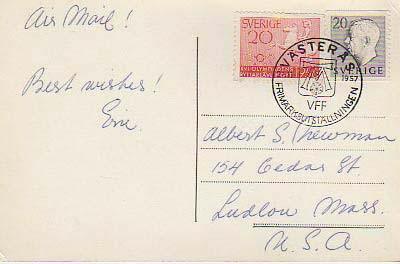 Air Mail!
Best wishes!
Eric.
SVERIGE
20
20
SVERIGE
VÄSTERÅS
1957
VFF
FRIMÄRKSUTSTÄLLNINGEN
Albert S. Newman
154 Cedar St.
Ludlow Mass.
U.S.A.